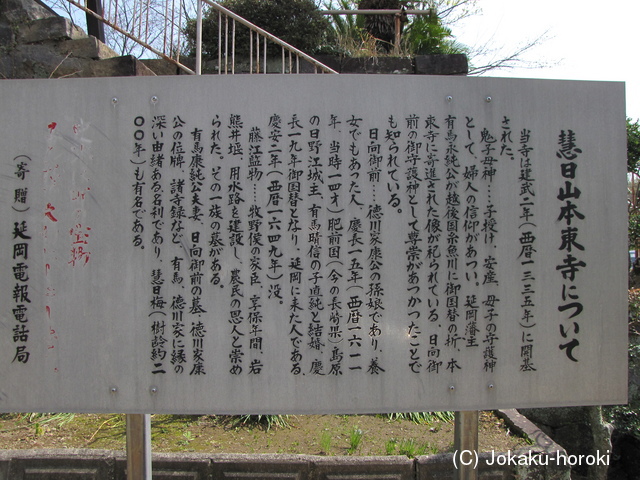 慧日山本東寺について
当寺は建武二年(西暦一三三五年)に開基
された。
鬼子母神……子授け、安産、母子の守護神
として、婦人の信仰があつい。延岡藩主
有馬永純公が越後国糸魚川に御国替の折、本
東寺に寄進された像が祀られている。日向御
前の御守護神として尊崇があつかったことで
も知られている。
日向御前……徳川家康公の孫娘であり、養
女でもあった人、慶長一五年(西暦一六一一
年、当時一四才)肥前国(今の長崎県)島原
の日野江城主、有馬晴信の子直純と結婚、慶
長一九年御国替となり、延岡に来た人である。
慶安二年(西暦一六四九年)没。
藤江監物……牧野侯の家臣、享保年間、岩
熊井堰、用水路を建設し、農民の恩人と崇め
られた。その一族の墓がある。
有馬康純公夫妻、日向御前の墓、徳川家康
公の位牌、諸寺録など、有馬、徳川家に縁の
深い由緒ある名刹であり、慧日梅(樹齢約二
〇〇年)も有名である。
(寄贈)延岡電報電話局
(C) Jokaku-horoki